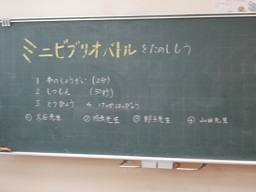 ミニビブリオバトルをたのしもう
1 本のしょうかい (2分)
2 しつもん (30秒)
3 とうひょう 4 けっかはっぴょう
① 先生 ② 先生 ③ 先生 ④ 山田先生